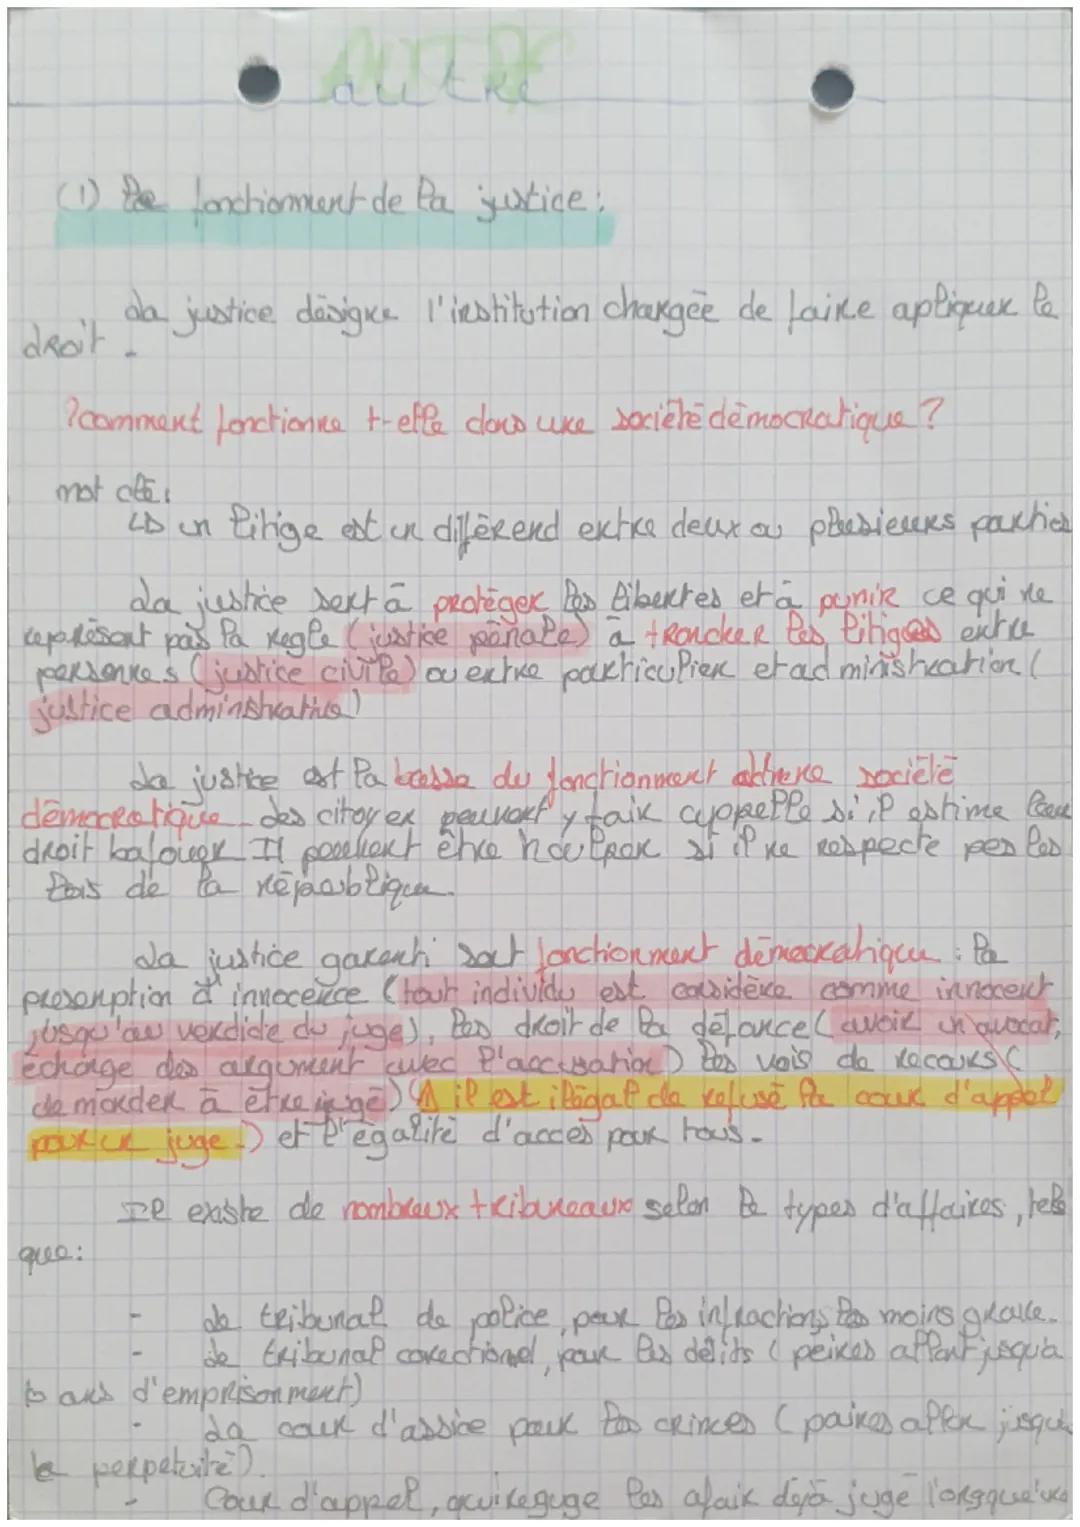 autre
(1) Le fonctionnment de la justice :
La justice désigne l'institution chargée de faire apliquer le
droit.
? comment fonctionne t-elle dans une société démocratique ?
mot clé :
↳ un litige est un diférend entre deux ou plusieurs parties
La justice sert à protéger les libertes et à punir ce qui ne
repésent pas la regle (justice pénale) à troncher les litiges entre
personnes (justice civile) ou entre particulier et administration (
justice adminstrative)
La justice est la basse du fonctionment société
démocratique des citoyen peuvent y faik appelle si il estime leur
droit bafouer Il peuvent être si il ne respecte pes les
lois de la république.
La justice garenti sont fonctionment démocratique : la
presomption d'innocence (tout individu est considère comme innocent
jusqu'au verdide du juge), les droit de la défance (avoir un avocat,
échange des argument avec l'accusation) les vois de recours (
demander à être jugé) (⚠ il est ilégal de refusé la cour d'appel
pour un juge.) et l'égalité d'accés pour tous.
Il existe de nombreux tribuneaux selon le types d'affaires, tels
que :
- Le tribunal de police, pour les infractions les moins grave.
- Le tribunal corectionel, pour les délits (peines allant jusqu'à
ans d'emprisonment)
- La cour d'assise pour les crimes (paines aller jusqu
la perpetuité).
- Cour d'appel, qui rejuge les afair déjà jugé l'orsque'une